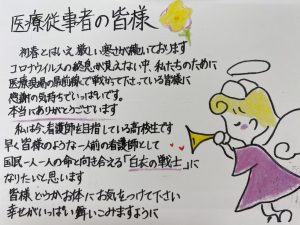 医療従事者の皆様
初春とはいえ、厳しい寒さが続いております
コロナウイルスの終息が見えない中、私たちのために
医療現場の最前線で戦って下さっている皆様に
感謝の気持ちでいっぱいです。
本当にありがとうございます
私は今、看護師を目指している高校生です
早く皆様のような一人前の看護師として
国民一人一人の命と向き合える「白衣の戦士」に
なりたいと思います
皆様どうかお体にお気をつけて下さい
幸せがいっぱい舞いこみますように